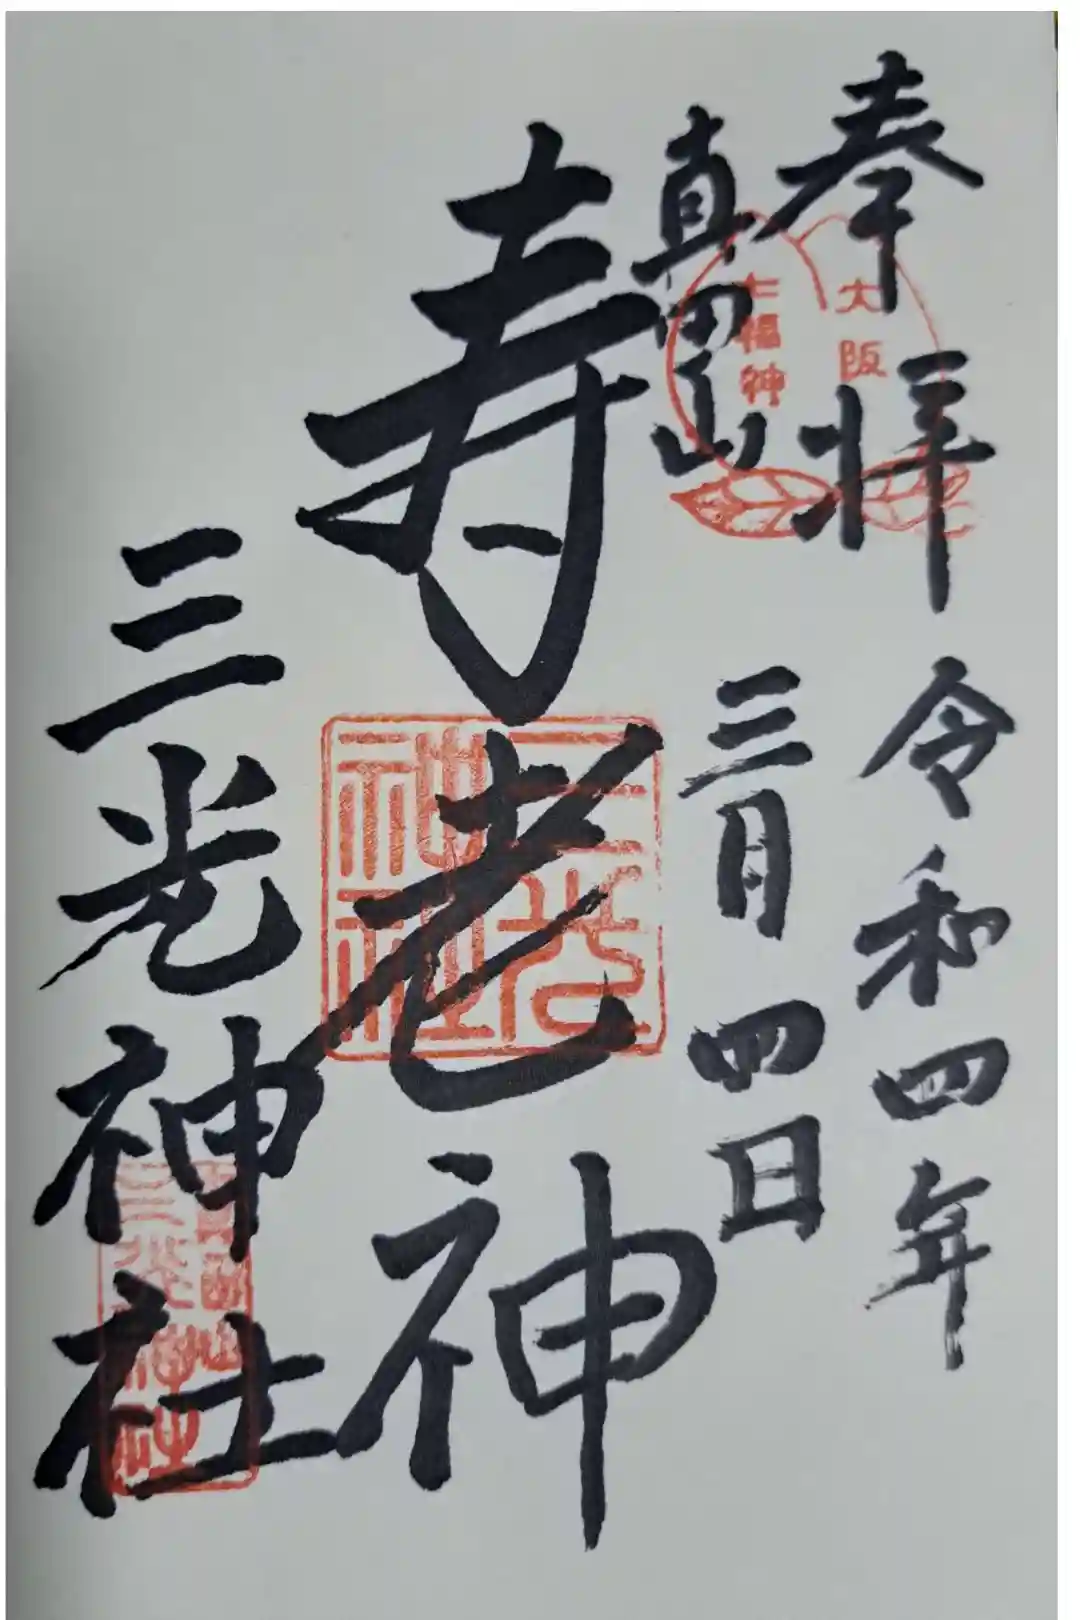 奉拝
令和四年
三月四日
真田山
大阪
七福神
寿老神
三光神社
三光神社
三光神社